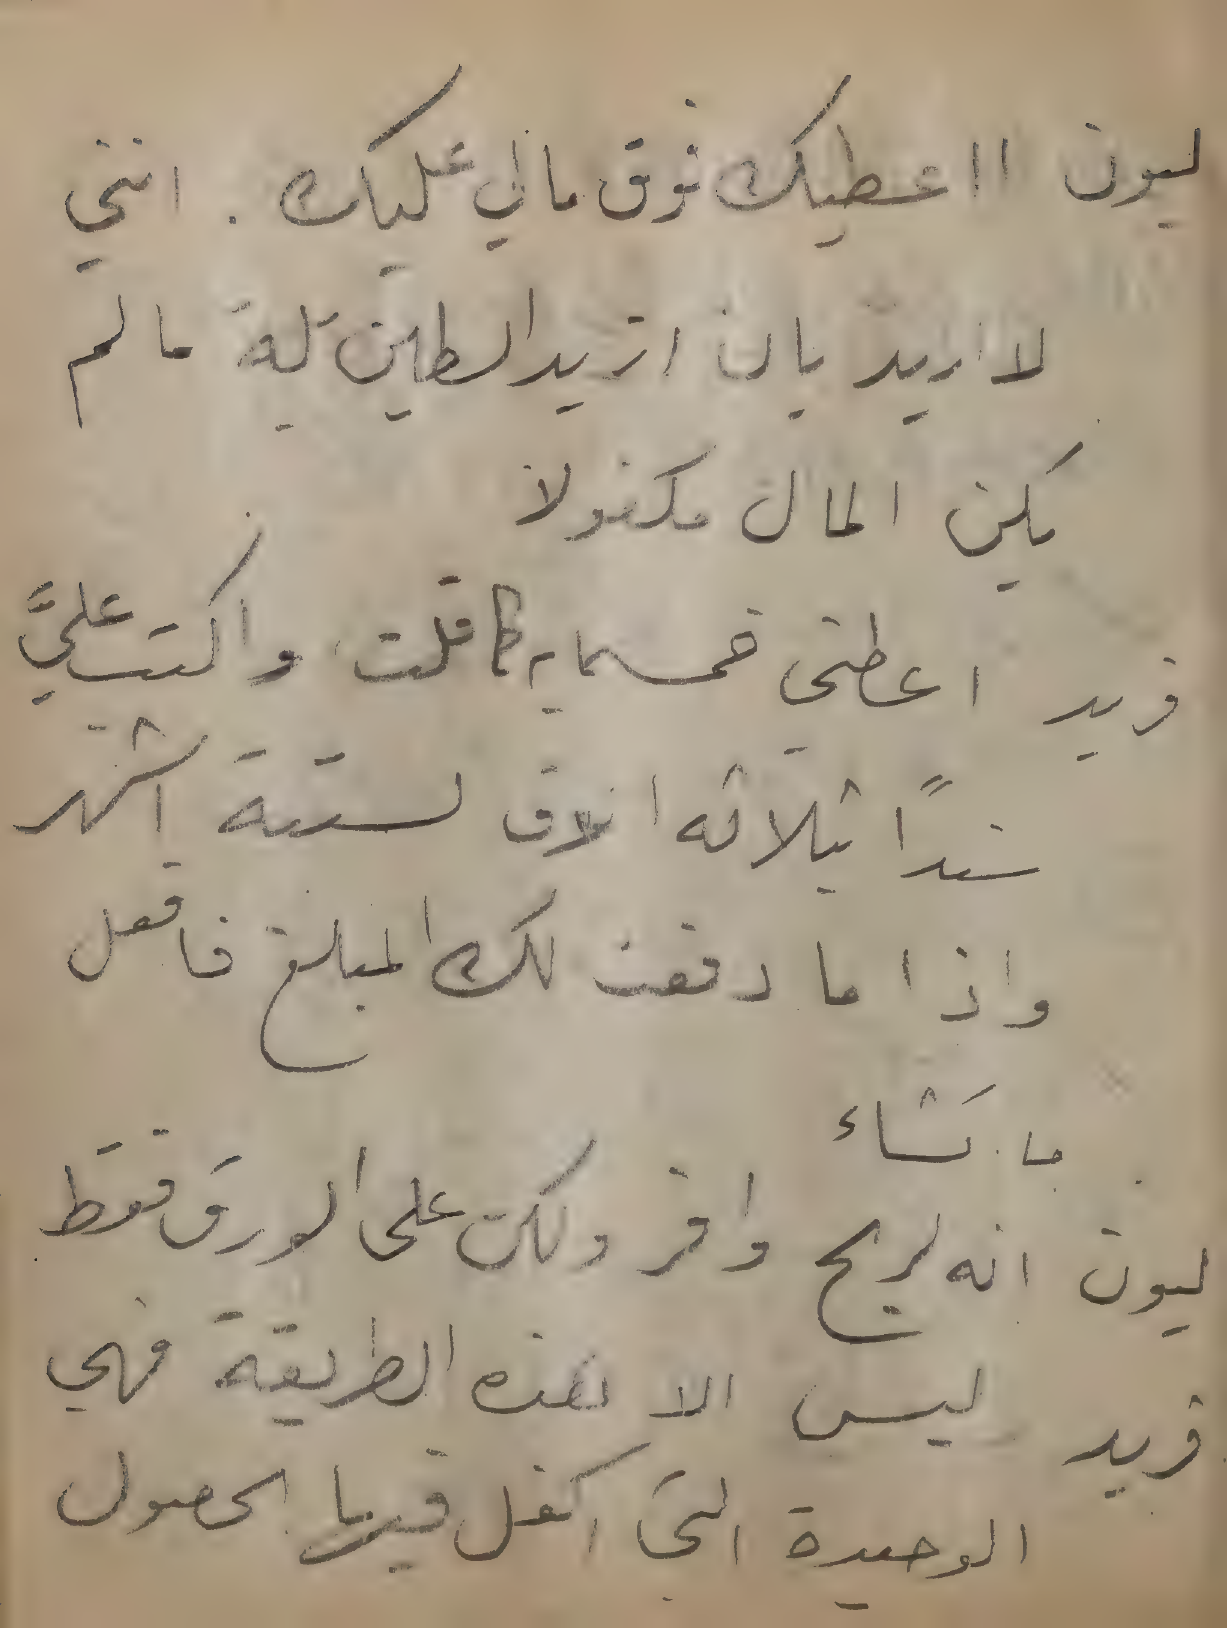 ليون ااعطيك فوق مالي عليك . انني
لا اريد بان ازيد الطين بلة مالم
يكن المال مكفولا
فريد اعطني خمسمايه كما قلت واكتب عليَّ
سنداً بثلاثه الاف لستة اشهر
واذا ما دفعت لك المبلغ فافعل
ما تشاء
ليون انه لربح وافر ولكن على الورق فقط
فريد ليس الا هذه الطريقة فهي
الوحيدة التي اكفل فيها الحصول